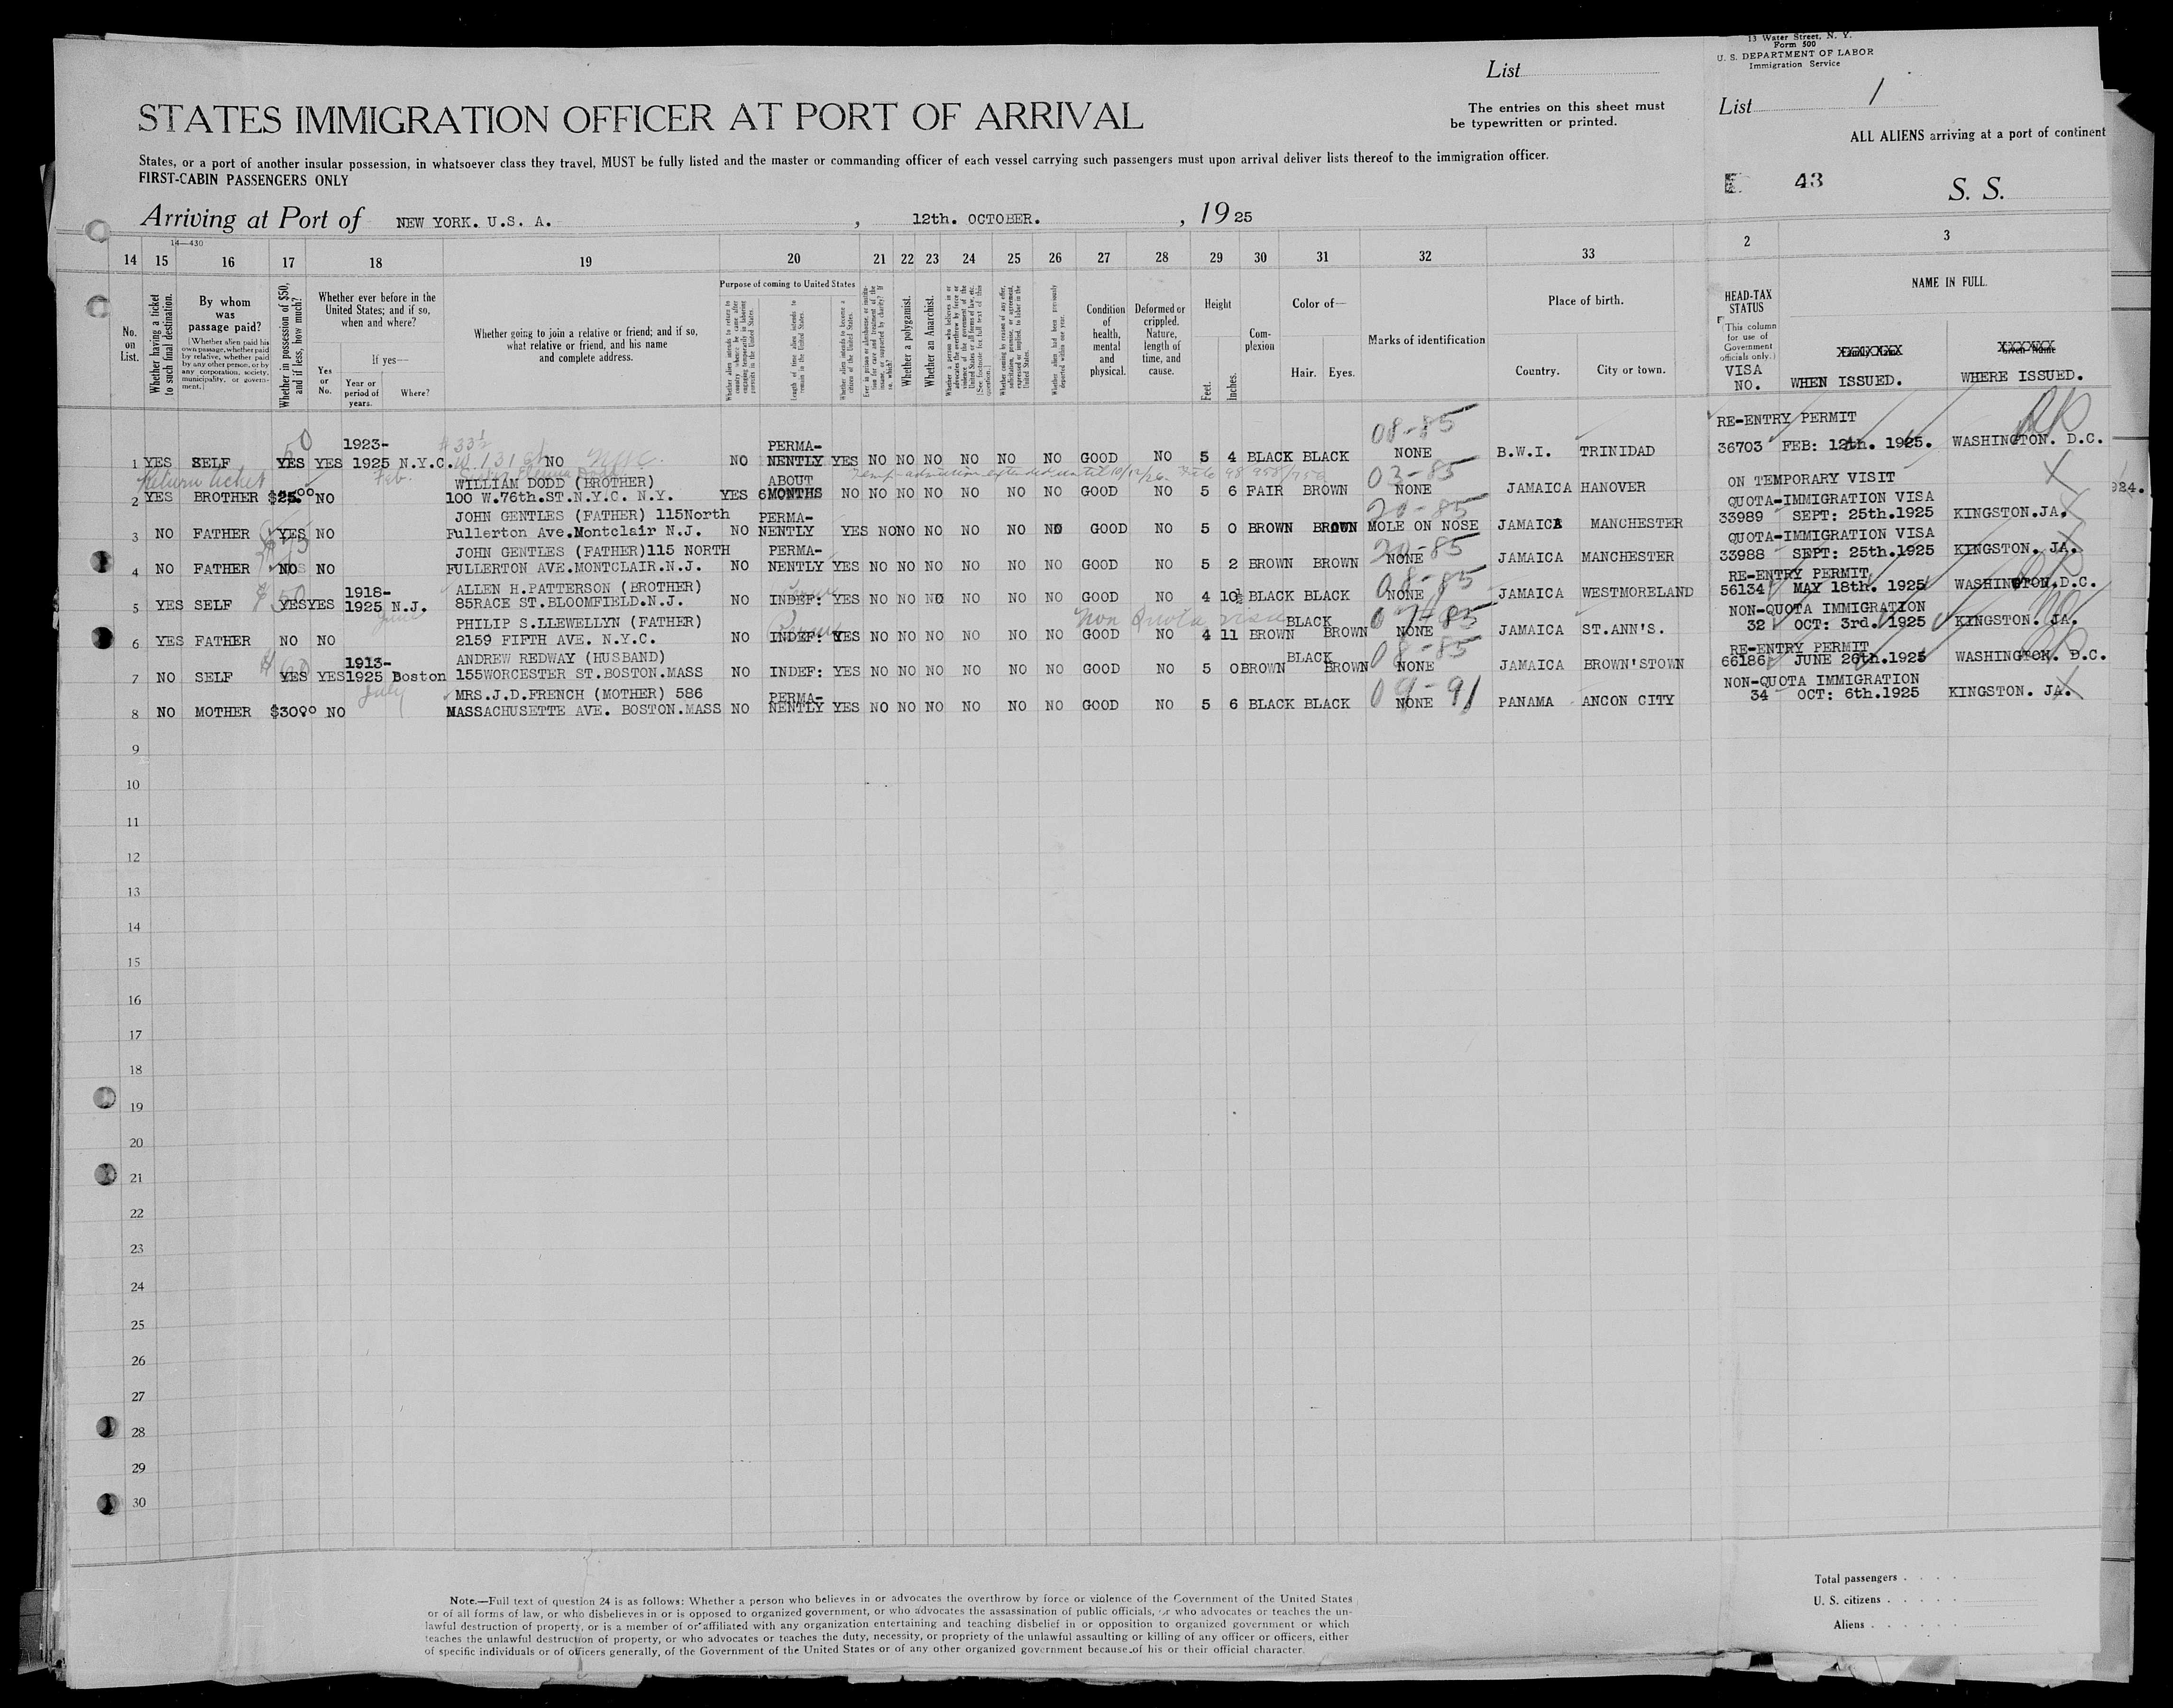 13 Water Street, N. Y.
Form 500
U. S. DEPARTMENT OF LABOR
Immigration Service
List
List 1
STATES IMMIGRATION OFFICER AT PORT OF ARRIVAL
The entries on this sheet must
be typewritten or printed.
ALL ALIENS arriving at a port of continent
States, or a port of another insular possession, in whatsoever class they travel, MUST be fully listed and the master or commanding officer of each vessel carrying such passengers must upon arrival deliver lists thereof to the immigration officer.
FIRST-CABIN PASSENGERS ONLY
43
S. S.
Arriving at Port of NEW YORK. U.S. A. , 12th. OCTOBER. , 1925
14—430
14 15 16 17 18 19 20 21 22 23 24 25 26 27 28 29 30 31 32 33 2 3
No. on List.
Whether having a ticket to such final destination.
By whom was passage paid?
(Whether alien paid his own passage, whether paid by relative, whether paid by any other person, or by any corporation, society, municipality, or government.)
Whether in possession of $50, and if less, how much?
Whether ever before in the United States; and if so, when and where?
Yes or No.
If yes—
Year or period of years.
Where?
Whether going to join a relative or friend; and if so, what relative or friend, and his name and complete address.
Purpose of coming to United States
Length of time alien intends to remain in the United States.
Whether alien intends to become a citizen of the United States.
Whether a polygamist.
Whether an Anarchist.
Condition of health, mental and physical.
Deformed or crippled. Nature, length of time, and cause.
Height
Feet. Inches.
Complexion
Color of—
Hair. Eyes.
Marks of identification
Place of birth.
Country. City or town.
HEAD-TAX STATUS
(This column for use of Government officials only.)
VISA NO.
NAME IN FULL.
WHEN ISSUED. WHERE ISSUED.
50 1923- # 33½ PERMA- 08-85 RE-ENTRY PERMIT
1 YES SELF YES YES 1925 N.Y.C. W. 131 st NO NYC. NO NENTLY YES NO NO NO NO NO NO GOOD NO 5 4 BLACK BLACK NONE B.W.I. TRINIDAD 36703 FEB: 12th. 1925. WASHINGTON. D.C.
Return ticket Feb. WILLIAM DODD (BROTHER) ABOUT Temp admission extended until 10/12/26. 03-85 ON TEMPORARY VISIT
2 YES BROTHER $25.00 NO 100 W.76th.ST.N.Y.C. N.Y. YES 6 MONTHS NO NO NO NO NO NO NO GOOD NO 5 6 FAIR BROWN NONE JAMAICA HANOVER 924.
JOHN GENTLES (FATHER) 115North PERMA- 20-85 QUOTA-IMMIGRATION VISA
3 NO FATHER YES NO Fullerton Ave.Montclair N.J. NO NENTLY YES NO NO NO NO NO NO GOOD NO 5 0 BROWN BROWN MOLE ON NOSE JAMAICA MANCHESTER 33989 SEPT: 25th.1925 KINGSTON.JA.
JOHN GENTLES (FATHER)115 NORTH PERMA- 20-85 QUOTA-IMMIGRATION VISA
4 NO FATHER NO NO FULLERTON AVE.MONTCLAIR.N.J. NO NENTLY YES NO NO NO NO NO NO GOOD NO 5 2 BROWN BROWN NONE JAMAICA MANCHESTER 33988 SEPT: 25th.1925 KINGSTON. JA.
$50 1918- ALLEN H.PATTERSON (BROTHER) 08-85 RE-ENTRY PERMIT
5 YES SELF YES YES 1925 N.J. 85RACE ST.BLOOMFIELD.N.J. NO INDEF: YES NO NO NO NO NO NO GOOD NO 4 10½ BLACK BLACK NONE JAMAICA WESTMORELAND 56134 MAY 18th. 1925 WASHINGTON.D.C.
June PHILIP S.LLEWELLYN (FATHER) Non Quota visa BLACK NON-QUOTA IMMIGRATION
6 YES FATHER NO NO 2159 FIFTH AVE. N.Y.C. NO INDEF: YES NO NO NO NO NO NO GOOD NO 4 11 BROWN BROWN NONE JAMAICA ST.ANN'S. 32 OCT: 3rd. 1925 KINGSTON. JA.
1913- ANDREW REDWAY (HUSBAND) BLACK 08-85 RE-ENTRY PERMIT
7 NO SELF YES YES 1925 Boston 155WORCESTER ST.BOSTON.MASS NO INDEF: YES NO NO NO NO NO NO GOOD NO 5 0 BROWN BROWN NONE JAMAICA BROWN'STOWN 66186 JUNE 26th.1925 WASHINGTON. D.C.
July MRS.J.D.FRENCH (MOTHER) 586 PERMA- 09-91 NON-QUOTA IMMIGRATION
8 NO MOTHER $30.00 NO MASSACHUSETTE AVE. BOSTON.MASS NO NENTLY YES NO NO NO NO NO NO GOOD NO 5 6 BLACK BLACK NONE PANAMA ANCON CITY 34 OCT: 6th.1925 KINGSTON. JA.
9
10
11
12
13
14
15
16
17
18
19
20
21
22
23
24
25
26
27
28
29
30
Total passengers . . . .
U. S. citizens . . . . .
Aliens . . . . . .
Note.—Full text of question 24 is as follows: Whether a person who believes in or advocates the overthrow by force or violence of the Government of the United States
or of all forms of law, or who disbelieves in or is opposed to organized government, or who advocates the assassination of public officials, or who advocates or teaches the un-
lawful destruction of property, or is a member of or affiliated with any organization entertaining and teaching disbelief in or opposition to organized government or which
teaches the unlawful destruction of property, or who advocates or teaches the duty, necessity, or propriety of the unlawful assaulting or killing of any officer or officers, either
of specific individuals or of officers generally, of the Government of the United States or of any other organized government because of his or their official character.